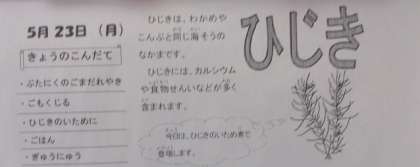 5月 23日 （月）
きょうのこんだて
・ぶたにくのごまだれやき
・ごもくじる
・ひじきのいために
・ごはん
・ぎゅうにゅう
ひじきは、わかめや
こんぶと同じ海そうの
なかまです。
ひじきには、カルシウム
や食物せんいなどが多く
含まれます。
今日は、ひじきのいため煮で
登場します。
ひじき